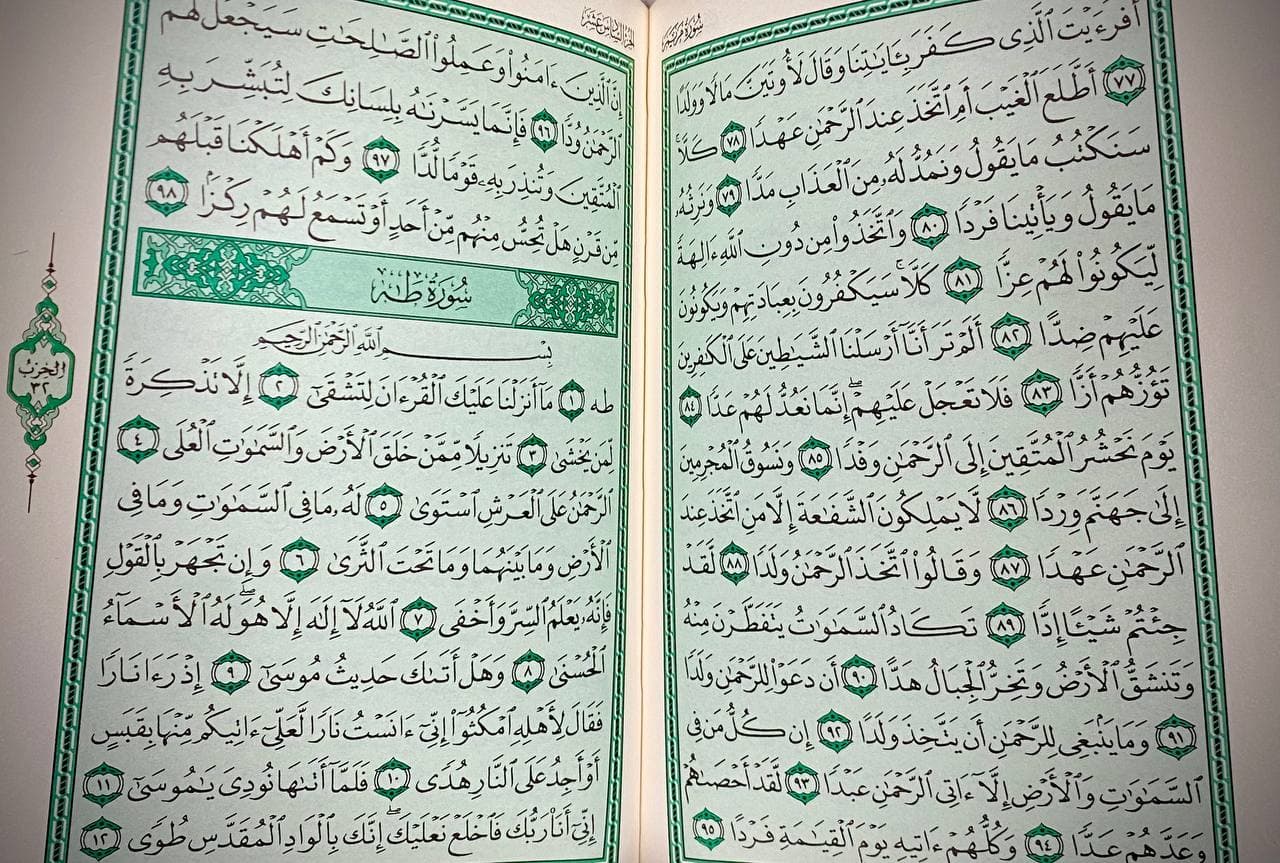 سُورَةُ مَرْيَمَ
أَفَرَءَيْتَ ٱلَّذِى كَفَرَ بِـَٔايَـٰتِنَا وَقَالَ لَأُوتَيَنَّ مَالًا وَوَلَدًا
٧٧ أَطَّلَعَ ٱلْغَيْبَ أَمِ ٱتَّخَذَ عِندَ ٱلرَّحْمَـٰنِ عَهْدًا ٧٨ كَلَّا ۚ
سَنَكْتُبُ مَا يَقُولُ وَنَمُدُّ لَهُۥ مِنَ ٱلْعَذَابِ مَدًّا ٧٩ وَنَرِثُهُۥ
مَا يَقُولُ وَيَأْتِينَا فَرْدًا ٨٠ وَٱتَّخَذُوا۟ مِن دُونِ ٱللَّهِ ءَالِهَةً
لِّيَكُونُوا۟ لَهُمْ عِزًّا ٨١ كَلَّا ۚ سَيَكْفُرُونَ بِعِبَادَتِهِمْ وَيَكُونُونَ
عَلَيْهِمْ ضِدًّا ٨٢ أَلَمْ تَرَ أَنَّآ أَرْسَلْنَا ٱلشَّيَـٰطِينَ عَلَى ٱلْكَـٰفِرِينَ
تَؤُزُّهُمْ أَزًّا ٨٣ فَلَا تَعْجَلْ عَلَيْهِمْ ۖ إِنَّمَا نَعُدُّ لَهُمْ عَدًّا ٨٤
يَوْمَ نَحْشُرُ ٱلْمُتَّقِينَ إِلَى ٱلرَّحْمَـٰنِ وَفْدًا ٨٥ وَنَسُوقُ ٱلْمُجْرِمِينَ
إِلَىٰ جَهَنَّمَ وِرْدًا ٨٦ لَّا يَمْلِكُونَ ٱلشَّفَـٰعَةَ إِلَّا مَنِ ٱتَّخَذَ عِندَ
ٱلرَّحْمَـٰنِ عَهْدًا ٨٧ وَقَالُوا۟ ٱتَّخَذَ ٱلرَّحْمَـٰنُ وَلَدًا ٨٨ لَّقَدْ
جِئْتُمْ شَيْـًٔا إِدًّا ٨٩ تَكَادُ ٱلسَّمَـٰوَٰتُ يَتَفَطَّرْنَ مِنْهُ
وَتَنشَقُّ ٱلْأَرْضُ وَتَخِرُّ ٱلْجِبَالُ هَدًّا ٩٠ أَن دَعَوْا۟ لِلرَّحْمَـٰنِ وَلَدًا
٩١ وَمَا يَنۢبَغِى لِلرَّحْمَـٰنِ أَن يَتَّخِذَ وَلَدًا ٩٢ إِن كُلُّ مَن فِى
ٱلسَّمَـٰوَٰتِ وَٱلْأَرْضِ إِلَّآ ءَاتِى ٱلرَّحْمَـٰنِ عَبْدًا ٩٣ لَّقَدْ أَحْصَىٰهُمْ
وَعَدَّهُمْ عَدًّا ٩٤ وَكُلُّهُمْ ءَاتِيهِ يَوْمَ ٱلْقِيَـٰمَةِ فَرْدًا ٩٥
الجُزْءُ السَّادِسَ عَشَرَ
إِنَّ ٱلَّذِينَ ءَامَنُوا۟ وَعَمِلُوا۟ ٱلصَّـٰلِحَـٰتِ سَيَجْعَلُ لَهُمُ
ٱلرَّحْمَـٰنُ وُدًّا ٩٦ فَإِنَّمَا يَسَّرْنَـٰهُ بِلِسَانِكَ لِتُبَشِّرَ بِهِ
ٱلْمُتَّقِينَ وَتُنذِرَ بِهِۦ قَوْمًا لُّدًّا ٩٧ وَكَمْ أَهْلَكْنَا قَبْلَهُم
مِّن قَرْنٍ هَلْ تُحِسُّ مِنْهُم مِّنْ أَحَدٍ أَوْ تَسْمَعُ لَهُمْ رِكْزًۢا ٩٨
سُورَةُ طه
بِسْمِ ٱللَّهِ ٱلرَّحْمَـٰنِ ٱلرَّحِيمِ
طه ١ مَآ أَنزَلْنَا عَلَيْكَ ٱلْقُرْءَانَ لِتَشْقَىٰٓ ٢ إِلَّا تَذْكِرَةً
لِّمَن يَخْشَىٰ ٣ تَنزِيلًا مِّمَّنْ خَلَقَ ٱلْأَرْضَ وَٱلسَّمَـٰوَٰتِ ٱلْعُلَى ٤
ٱلرَّحْمَـٰنُ عَلَى ٱلْعَرْشِ ٱسْتَوَىٰ ٥ لَهُۥ مَا فِى ٱلسَّمَـٰوَٰتِ وَمَا فِى
ٱلْأَرْضِ وَمَا بَيْنَهُمَا وَمَا تَحْتَ ٱلثَّرَىٰ ٦ وَإِن تَجْهَرْ بِٱلْقَوْلِ
فَإِنَّهُۥ يَعْلَمُ ٱلسِّرَّ وَأَخْفَى ٧ ٱللَّهُ لَآ إِلَـٰهَ إِلَّا هُوَ ۖ لَهُ ٱلْأَسْمَآءُ
ٱلْحُسْنَىٰ ٨ وَهَلْ أَتَىٰكَ حَدِيثُ مُوسَىٰٓ ٩ إِذْ رَءَا نَارًا
فَقَالَ لِأَهْلِهِ ٱمْكُثُوٓا۟ إِنِّىٓ ءَانَسْتُ نَارًا لَّعَلِّىٓ ءَاتِيكُم مِّنْهَا بِقَبَسٍ
أَوْ أَجِدُ عَلَى ٱلنَّارِ هُدًى ١٠ فَلَمَّآ أَتَىٰهَا نُودِىَ يَـٰمُوسَىٰٓ ١١
إِنِّىٓ أَنَا۠ رَبُّكَ فَٱخْلَعْ نَعْلَيْكَ ۖ إِنَّكَ بِٱلْوَادِ ٱلْمُقَدَّسِ طُوًى ١٢
الحِزْبُ
٣٢